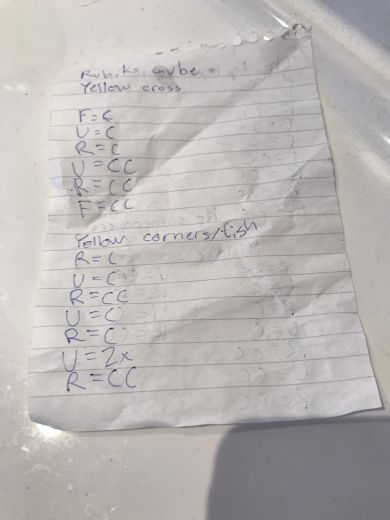 Rubiks cube
Yellow cross
F=C
U=C
R=C
U=CC
R=CC
F=CC
Yellow corners/fish
R=C
U=C
R=CC
U=C
R=C
U=2x
R=CC